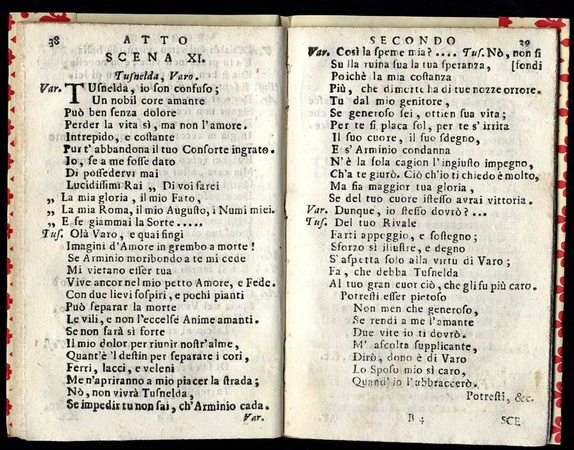 38 ATTO
SCENA XI.
Tusnelda, Varo.
Var. TUsnelda, io son confuso;
Un nobil core amante
Può ben senza dolore
Perder la vita sì, ma non l'amore.
Intrepido, e costante
Pur t'abbandona il tuo Consorte ingrato.
Io, se a me fosse dato
Di possedervi mai
Lucidissimi Rai „ Di voi farei
„ La mia gloria, il mio Fato,
„ La mia Roma, il mio Augusto, i Numi miei.
„ E se giammai la Sorte .....
Tus. Olà Varo, e quai fingi
Imagini d'Amore in grembo a morte!
Se Arminio moribondo a te mi cede
Mi vietano esser tua
Vive ancor nel mio petto Amore, e Fede.
Con due lievi sospiri, e pochi pianti
Può separar la morte
Le vili, e non l'eccelse Anime amanti.
Se non sarà sì forte
Il mio dolor per riunir nostr'alme,
Quant'è 'l destin per separare i cori,
Ferri, lacci, e veleni
Me n'apriranno a mio piacer la strada;
Nò, non vivrà Tusnelda,
Se impedir tu non sai, ch'Arminio cada.
Var.
SECONDO 39
Var. Così la speme mia? .... Tus. Nò, non si
Sulla ruina sua la tua speranza, [fondi
Poichè la mia costanza
Più, che di morte ha di tue nozze orrore.
Tu dal mio genitore,
Se generoso sei, ottien sua vita;
Per te si placa sol, per te s'irrita
Il suo cuore, il suo sdegno,
E s'Arminio condanna
N'è la sola cagion l'ingiusto impegno,
Ch'a te giurò. Ciò ch'io ti chiedo è molto,
Ma fia maggior tua gloria,
Se del tuo cuore istesso avrai vittoria.
Var. Dunque, io stesso dovrò? ...
Tus. Del tuo Rivale
Farti appoggio, e sostegno;
Sforzo sì illustre, e degno
S'aspetta solo alla virtù di Varo;
Fa, che debba Tusnelda
Al tuo gran cuor ciò, che gli fu più caro.
Potresti esser pietoso
Non men che generoso,
Se rendi a me l'amante
Due vite io ti dovrò.
M'ascolta supplicante,
Dirò, dono è di Varo
Lo Sposo mio sì caro,
Quand'io l'abbraccerò.
Potresti, &c.
B 4 SCE